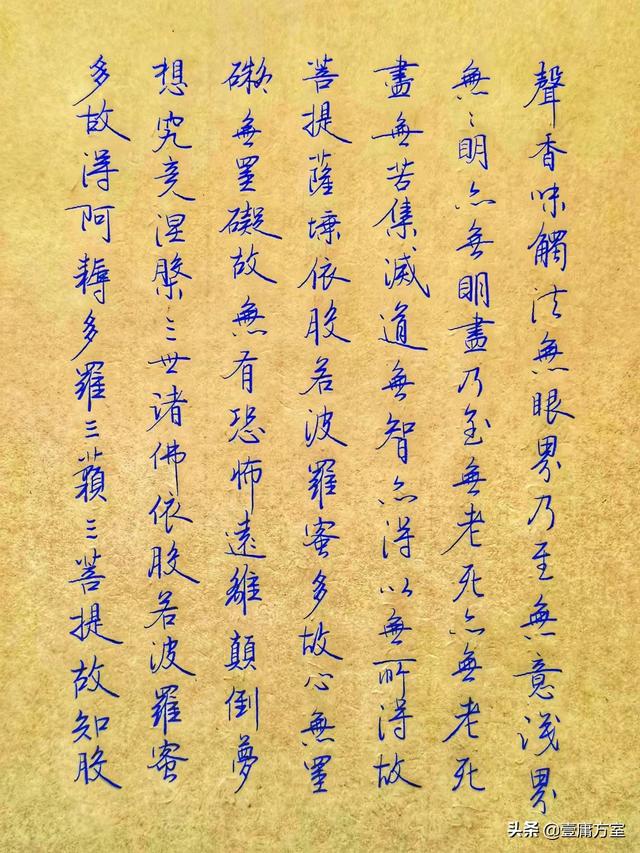 聲香味觸法無眼界乃至無意識界
無〻明亦無明盡乃至無老死亦無老死
盡無苦集滅道無智亦得以無所得故
菩提薩埵依般若波羅蜜多故心無罣
礙無罣礙故無有恐怖遠離顛倒夢
想究竟涅槃三世諸佛依般若波羅蜜
多故得阿耨多羅三藐三菩提故知般
头条 @壹庸方室